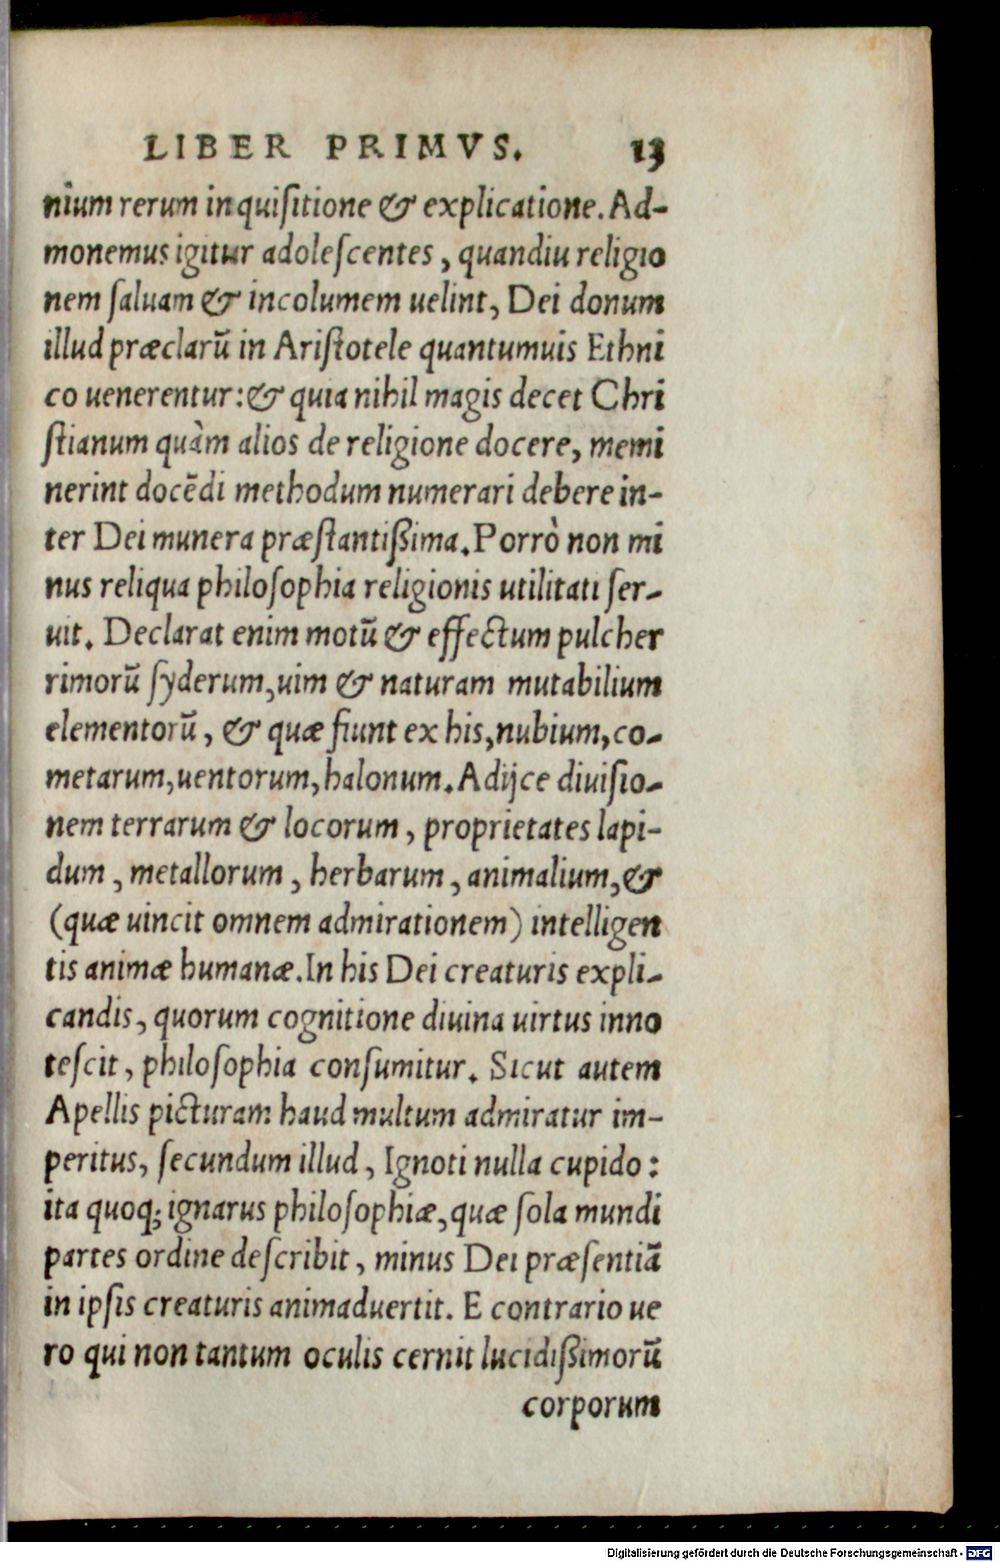 LIBER PRIMVS. 13
nium rerum inquiſitione & explicatione. Ad-
monemus igitur adoleſcentes, quandiu religio
nem ſaluam & incolumem uelint, Dei donum
illud præclarũ in Ariſtotele quantumuis Ethni
co uenerentur: & quia nihil magis decet Chri
ſtianum quàm alios de religione docere, memi
nerint docẽdi methodum numerari debere in-
ter Dei munera præſtantißima. Porrò non mi
nus reliqua philoſophia religionis utilitati ſer-
uit. Declarat enim motũ & effectum pulcher
rimorũ ſyderum, uim & naturam mutabilium
elementorũ, & quæ fiunt ex his, nubium, co-
metarum, uentorum, halonum. Adijce diuiſio-
nem terrarum & locorum, proprietates lapi-
dum, metallorum, herbarum, animalium, &
(quæ uincit omnem admirationem) intelligen
tis animæ humanæ. In his Dei creaturis expli-
candis, quorum cognitione diuina uirtus inno
teſcit, philoſophia conſumitur. Sicut autem
Apellis picturam haud multum admiratur im-
peritus, ſecundum illud, Ignoti nulla cupido:
ita quoq; ignarus philoſophiæ, quæ ſola mundi
partes ordine deſcribit, minus Dei præſentiã
in ipſis creaturis animaduertit. E contrario ue
ro qui non tantum oculis cernit lucidißimorũ
corporum
Digitalisierung gefördert durch die Deutsche Forschungsgemeinschaft - DFG